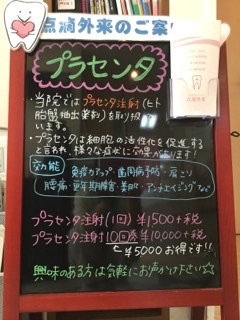 点滴外来のご案
プラセンタ
・当院ではプラセンタ注射(ヒト
胎盤抽出薬剤)を取り扱
います。
・プラセンタは細胞の活性化を促進する
と言われ、様々な症状に効果があります!
効能
免疫力アップ・歯周病予防・肩こり
腰痛・更年期障害・美肌・アンチエイジングなど
プラセンタ注射(1回)¥1500+税
プラセンタ注射10回券¥10000+税
¥5000お得です!!
興味のある方は気軽にお声かけ下さい☆